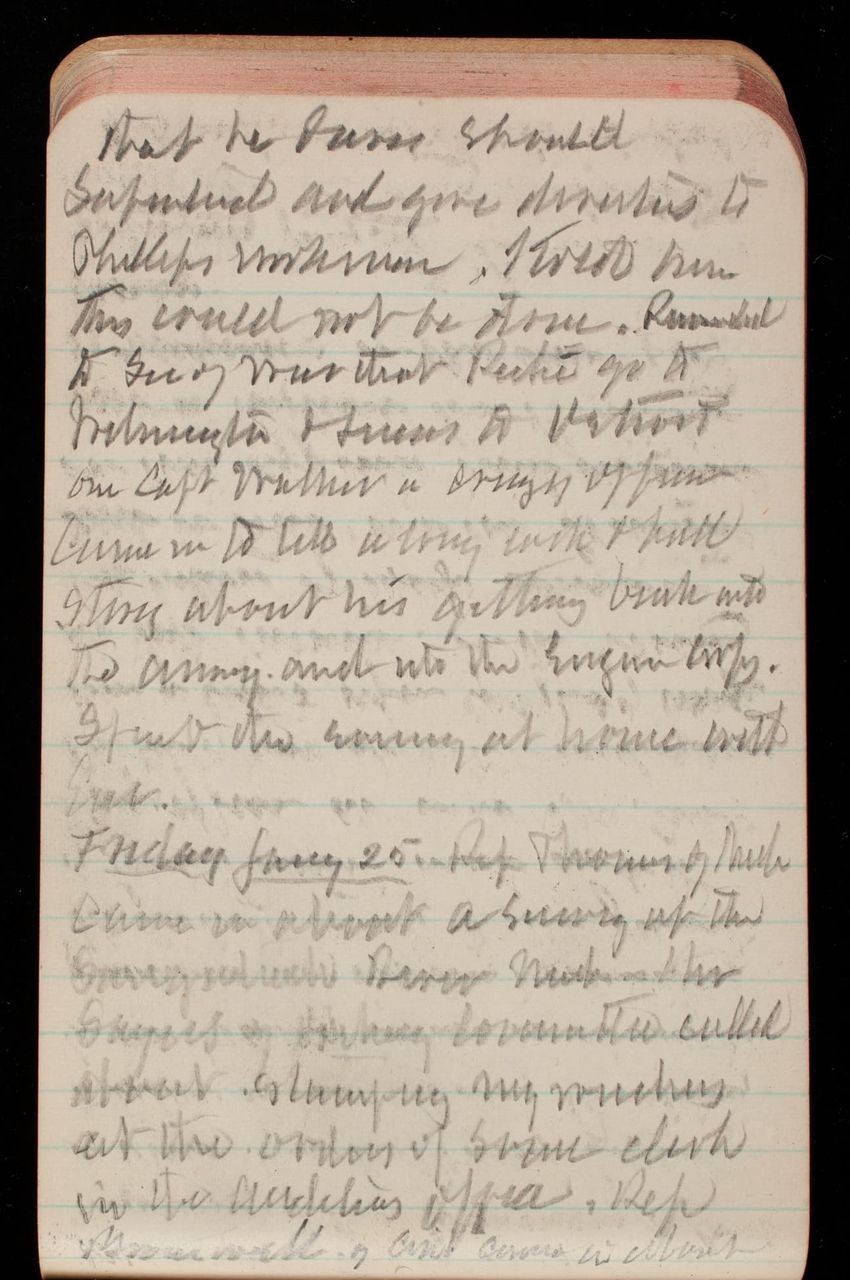 that he Davis should
Superintend and give directions to
Phillips workman. I told him
this would not be done.
to Secy War that go to
Wilmington & to Detroit
one Capt Walker a crazy officer
Came in to tell a long cock & bull
Story about his getting back into
the army. and into the Engin Corps.
Spent the evening at home with
Eva.
Friday Jany 25. Rep Thomas of Mich
Came in about a Survey up the
River Mich
Sayers of Committee called
about stamping my vouchers
at the orders of some clerk
in the Auditors office. Rep
of came in about